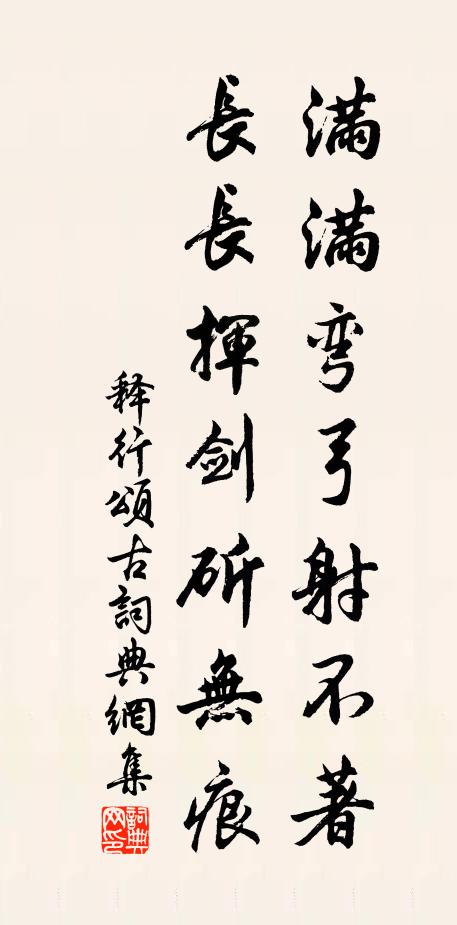 滿滿彎弓射不著
長長揮劍斫無痕
释行頌古詞典網集
詞典网印